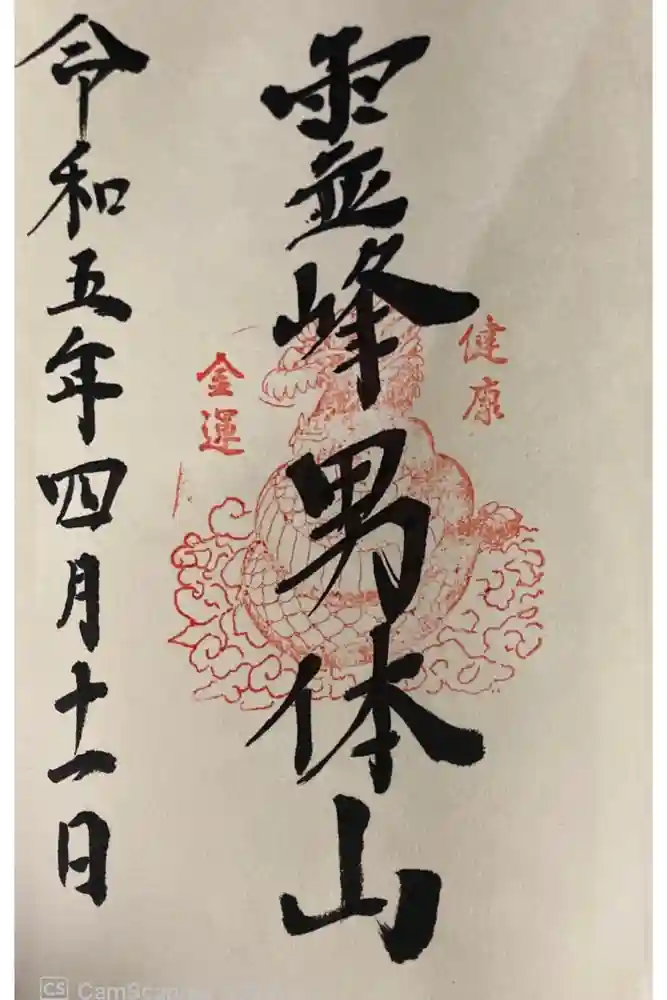 霊峰男体山
健康
金運
令和五年四月十一日
CS CamScan